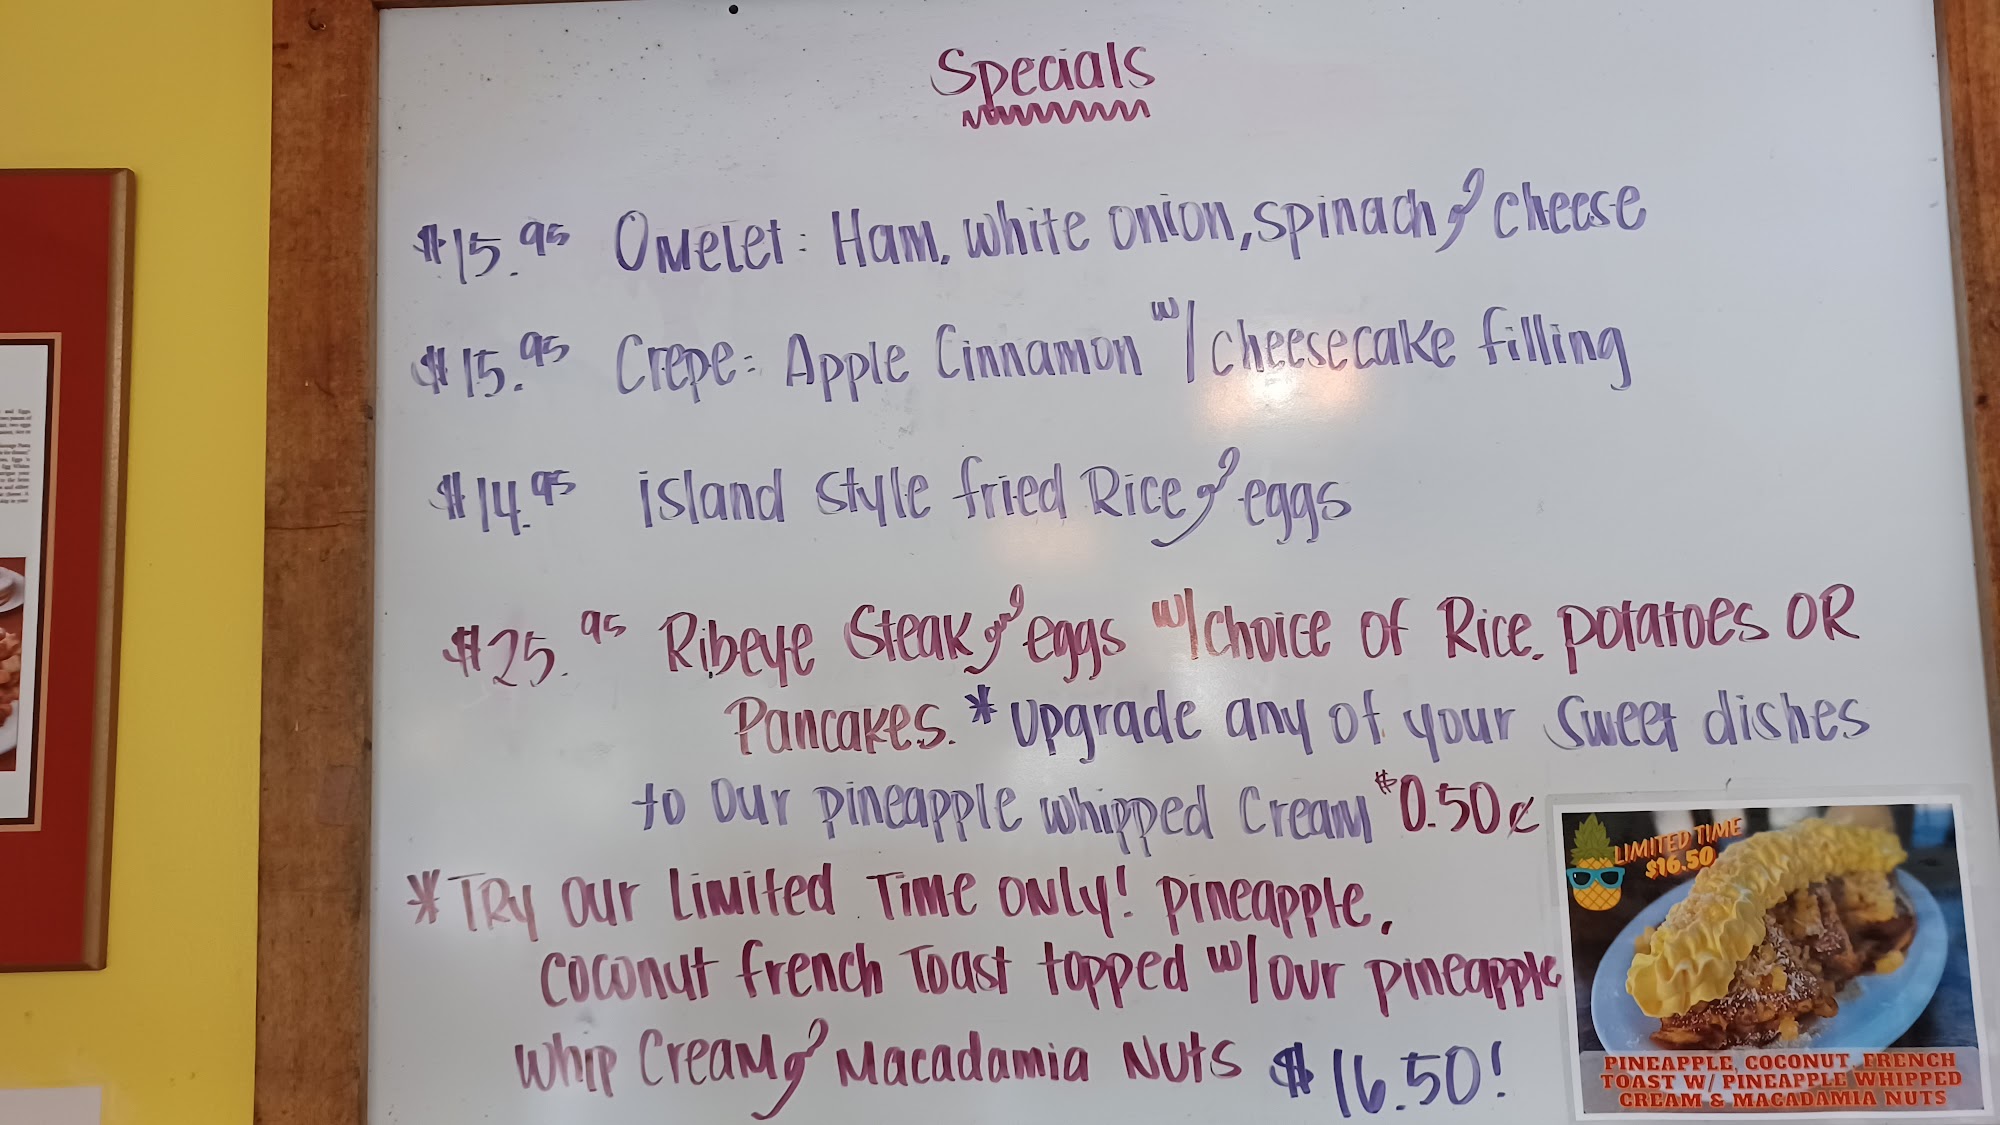 Specials
$15.95 Omelet: Ham, white onion, spinach & cheese
$15.95 Crepe: Apple Cinnamon w/ cheesecake filling
$14.95 island style fried Rice & eggs
$25.95 Ribeye Steak & eggs w/ choice of Rice, potatoes OR
Pancakes. * upgrade any of your sweet dishes
to our pineapple whipped cream $0.50¢
* TRY our Limited Time ONLY! pineapple,
coconut french Toast topped w/ our pineapple
whip cream & Macadamia Nuts $16.50!
LIMITED TIME
$16.50
PINEAPPLE, COCONUT, FRENCH
TOAST W/ PINEAPPLE WHIPPED
CREAM & MACADAMIA NUTS